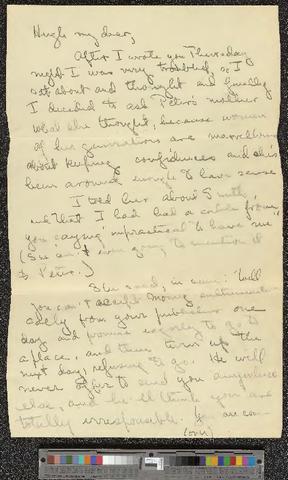 Hugh my dear,
After I wrote you Thursday
night I was very troubled, so I
sat about and thought and finally
I decided to ask Peter's mother
what she thought, because women
of her generations are marvellous
about keeping confidences and she's
been around enough to have sense
I told her about Smith,
and that I had had a cable from
you saying "impractical to have me"
(She isn't even going to mention it
to Peter.)
She said, in sum: "Well
you can't accept money
from your publisher one
day and promise eagerly to go to
a place, and then turn up the
next day, refusing to go. He will
never offer to send you anywhere
else, and he'll think you are
totally irresponsible. You are com-
(over)